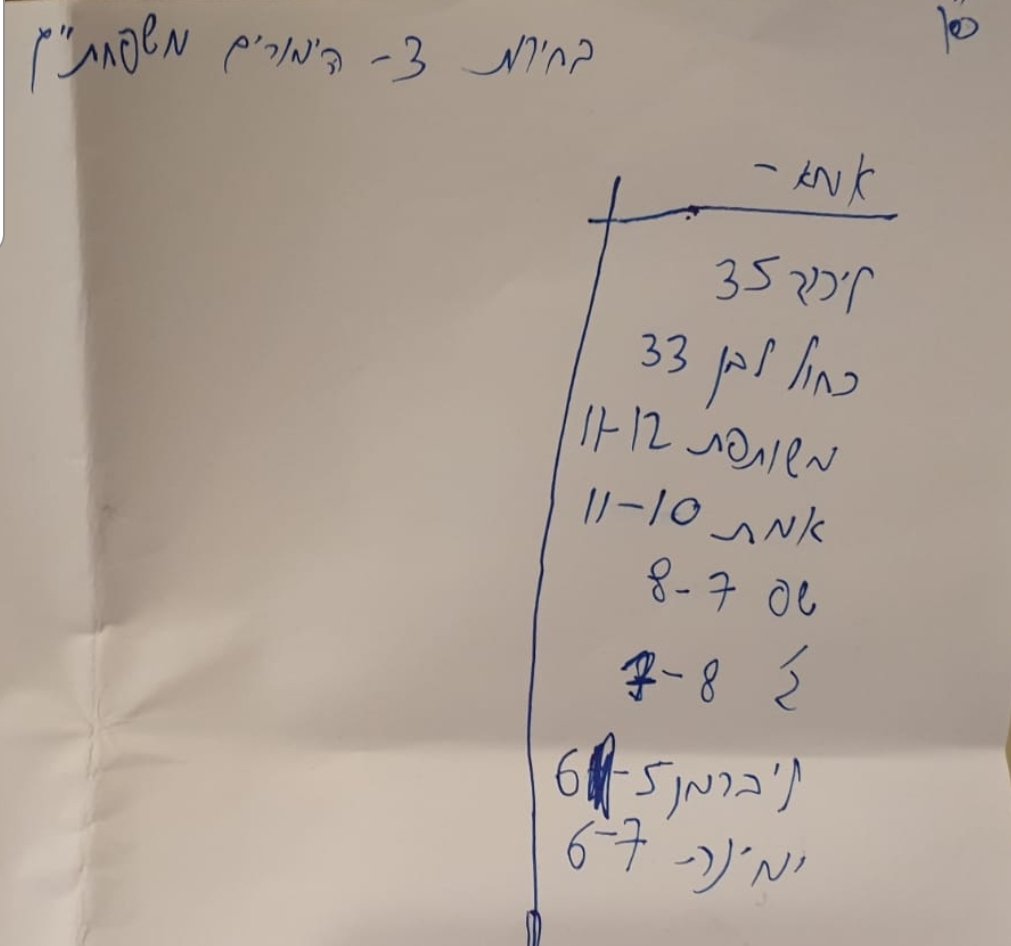 בחירות 3- הימורים משפחת"ם
אמא -
ליכוד 35
כחול לבן 33
משותפת 11-12
אמת 11-10
שס 8-7
ג' 7-8
ליברמן 6-5
ימינה 6-7